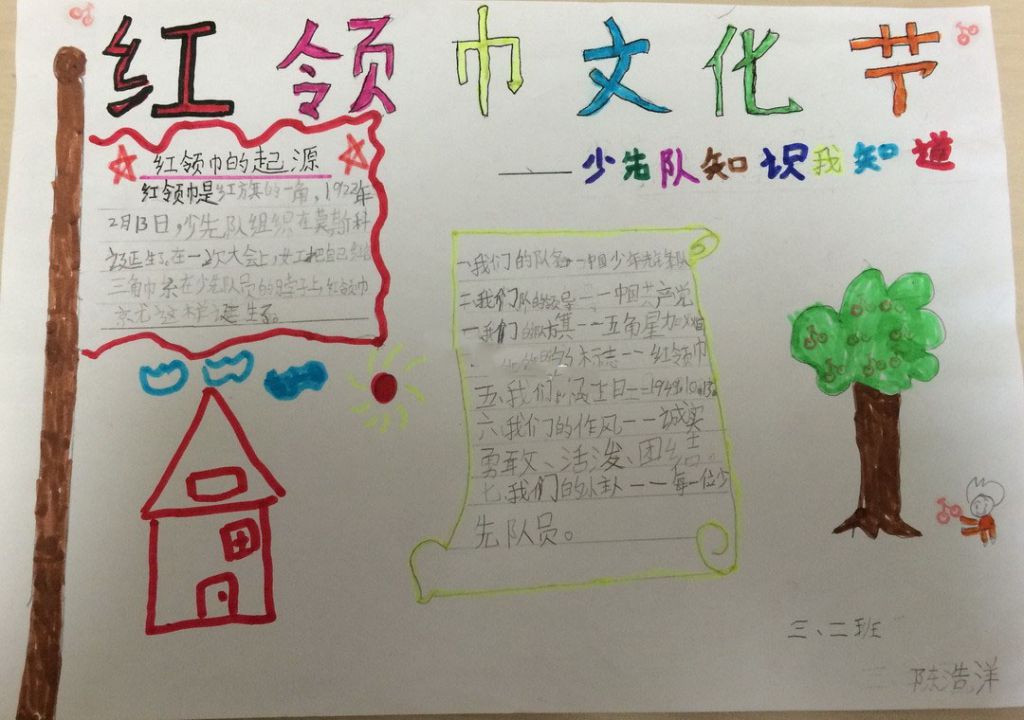 红领巾文化节
——少先队知识我知道
红领巾的起源
红领巾是红方旗的一角，1922年
2月13日，少先队组织在莫斯科
诞生了,在一次大会上,女工把自己的
三角巾系在少先队员的脖子上,红领巾
就这样诞生了。
一、我们的队名——中国少年先锋队
二、我们队的领导——中国共产党
我们的队旗——五角星加火炬
的标志——红领巾
五、我们诞生日——1949.10.13
六、我们的作风——诚实
勇敢、活泼、团结。
七、我们的——每一位少
先队员。
三、二班
陈浩洋